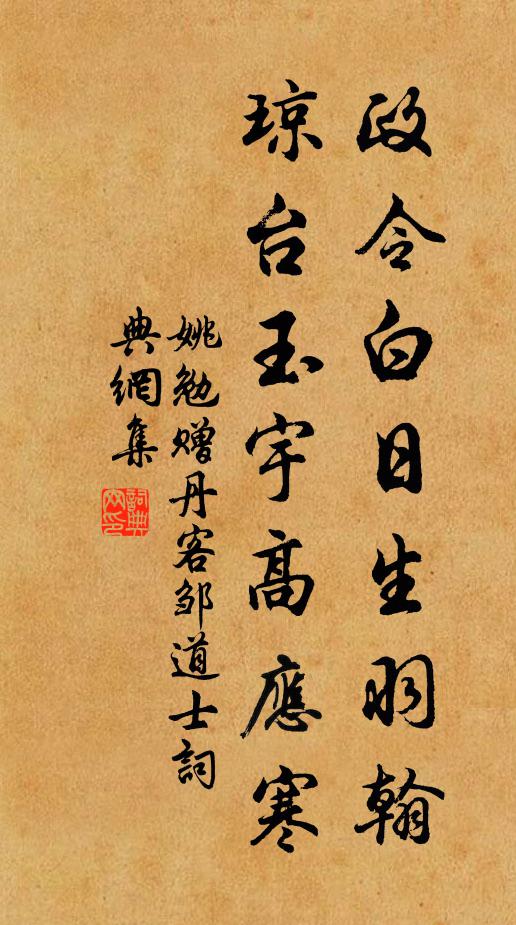 政令白日生羽翰
琼台玉宇高應寒
姚勉赠丹客邹道士詞
典網集
詞典網印